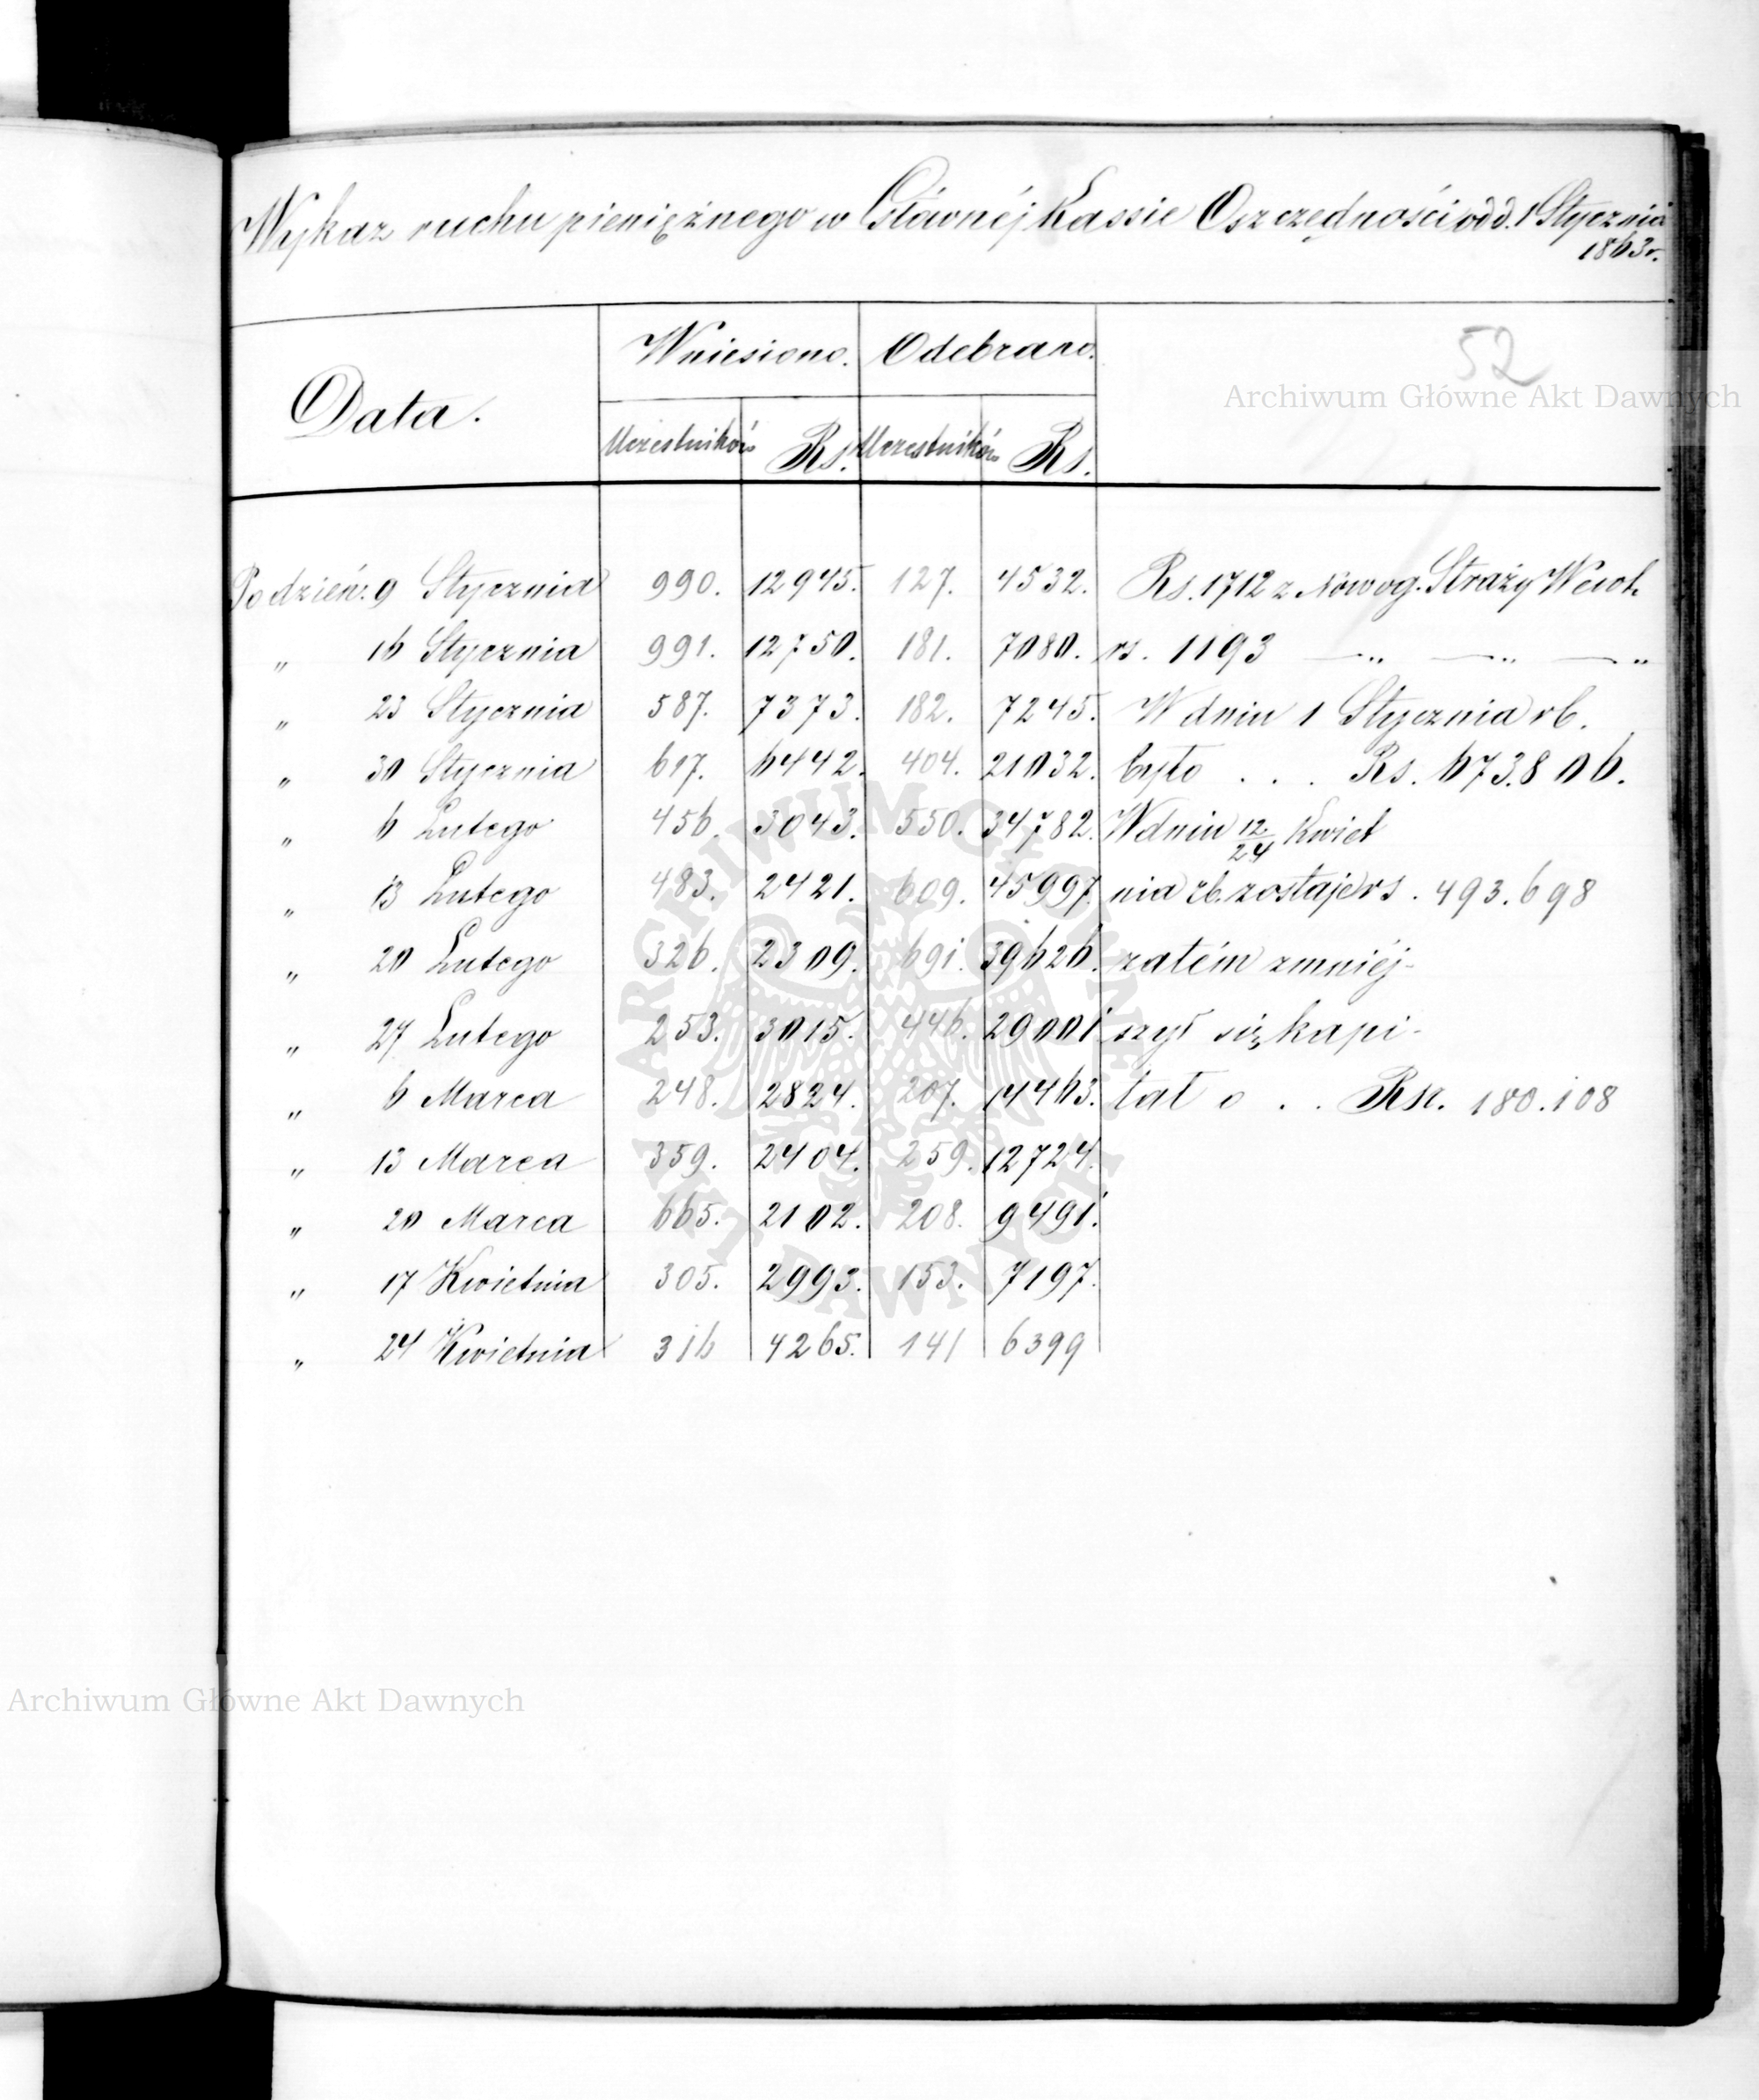 Wykaz ruchu pieniężnego w Głównéj Kassie Oszczędności od d. 1 Stycznia
1863 r.
52
Archiwum Główne Akt Dawnych
Data. Wniesiono. Odebrano.
Uczestników Rs. Uczestników Rs.
Po dzień: 9 Stycznia 990. 12945. 127. 4532. Rs. 1712 z Nowog. Straży
„ 16 Stycznia 991. 12750. 181. 7080. rs. 1193 —„ —„ —„
„ 23 Stycznia 587. 7373. 182. 7245. W dniu 1 Stycznia rb.
„ 30 Stycznia 617. 6442. 404. 21032. było . . . Rs. 673.806.
„ 6 Lutego 456. 3043. 550. 34782. W dniu 12/24 Kwiet
„ 13 Lutego 483. 2421. 609. 45997. nia rb. zostaje rs. 493.698
„ 20 Lutego 326. 2309. 691. 39626. zatém zmniéj-
„ 27 Lutego 253. 3015. 446. 29001 szył się kapi-
„ 6 Marca 248. 2824. 207. 14463. tał o . . Rsr. 180.108
„ 13 Marca 359. 2404. 259. 12724.
„ 20 Marca 665. 2102. 208. 9491.
„ 17 Kwietnia 305. 2993. 153. 7197.
„ 24 Kwietnia 316 4265. 141 6399
ARCHIWUM GŁÓWNE AKT DAWNYCH
Archiwum Główne Akt Dawnych